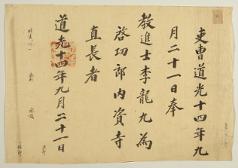 吏曹道光十四年九
月二十一日奉
教進士李龍九為
啓功郎內資寺
直長者
道光十四年九月二十一日